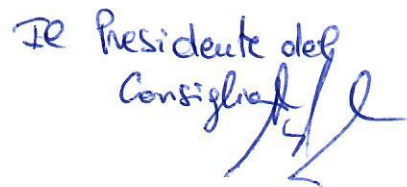 Il Presidente del
Consiglio